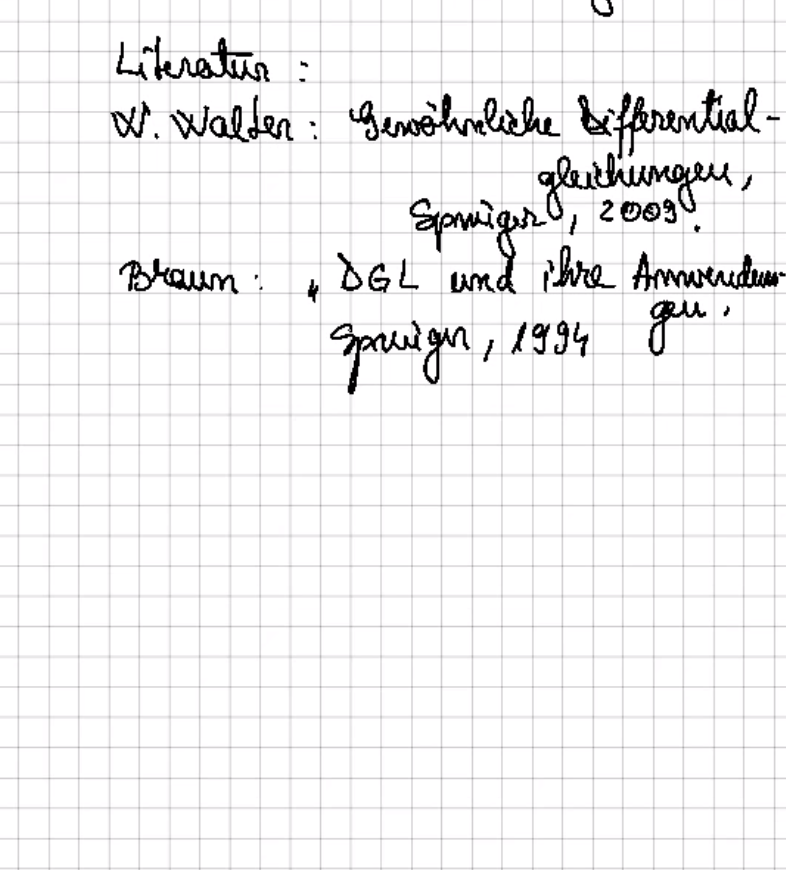 Literatur :
W. Walter : Gewöhnliche Differential-
gleichungen,
Springer, 2009.
Braun : „ DGL und ihre Anwendun-
gen.
Springer, 1994